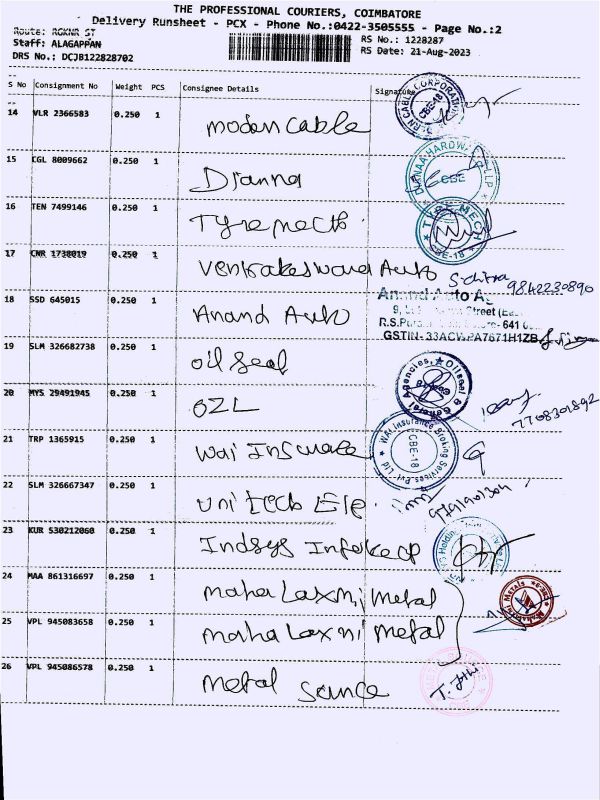 THE PROFESSIONAL COURIERS, COIMBATORE
Delivery Runsheet - PCX - Phone No.:0422-3505555 - Page No.:2
Route: RGKNR ST
RS No.: 1228287
Staff: ALAGAPPAN
RS Date: 21-Aug-2023
DRS No.: DCJB122828702
S No Consignment No Weight PCS Consignee Details Signature
14 VLR 2366583 0.250 1 modern cable
15 CGL 8009662 0.250 1 Dianna
16 TEN 7499146 0.250 1 Tyremech
TYRE MECH
CBE-18
17 CNR 1738019 0.250 1 Venkateswara Auto
9842230890
18 SSD 645015 0.250 1 Anand Auto
Anand Auto
R.S.Puram 641
GSTIN- 33ACWPA7671H1ZB
19 SLM 326682738 0.250 1 oil seal
20 MYS 29491945 0.250 1 OZL
7708301892
21 TRP 1365915 0.250 1 Wai Insurance
WAI Insurance Broking Services Pvt. Ltd
CBE-18
22 SLM 326667347 0.250 1 Unitech Ele
23 KUR 530212060 0.250 1 Indsys
24 MAA 861316697 0.250 1 maha Laxmi metal
25 VPL 945083658 0.250 1 maha Laxmi metal
26 VPL 945086578 0.250 1 metal